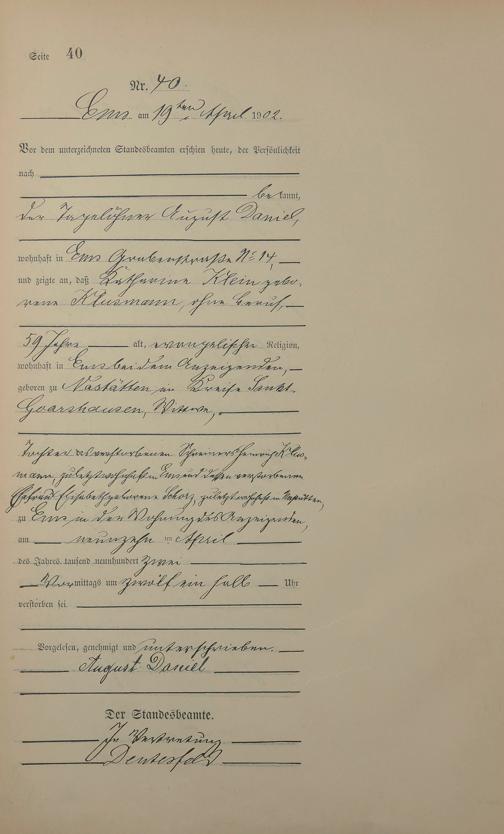 Seite 40
Nr. 40.
Ems am 19ten April 1902.
Vor dem unterzeichneten Standesbeamten erschien heute, der Persönlichkeit
nach
bekannt,
der Tagelöhner August Daniel,
wohnhaft in Ems Grabenstraße No 14,
und zeigte an, daß Katharine Klein gebo-
rene Klusmann, ohne Beruf,
59 Jahre alt, evangelischer Religion,
wohnhaft in Ems bei dem Anzeigenden,
geboren zu Nastätten, im Kreise Sankt-
Goarshausen, Wittwe,
Tochter des verstorbenen Schreiners Klus-
mann, zuletzt wohnhaft in Ems und dessen verstorbenen
Ehefrau Elisabeth geborene zuletzt wohnhaft in Nastätten,
zu Ems in der Wohnung des Anzeigenden,
am neunzehn ten April
des Jahres tausend neunhundert zwei
Vormittags um zwölf ein halb Uhr
verstorben sei.
Vorgelesen, genehmigt und unterschrieben.
August Daniel
Der Standesbeamte.
In Vertretung